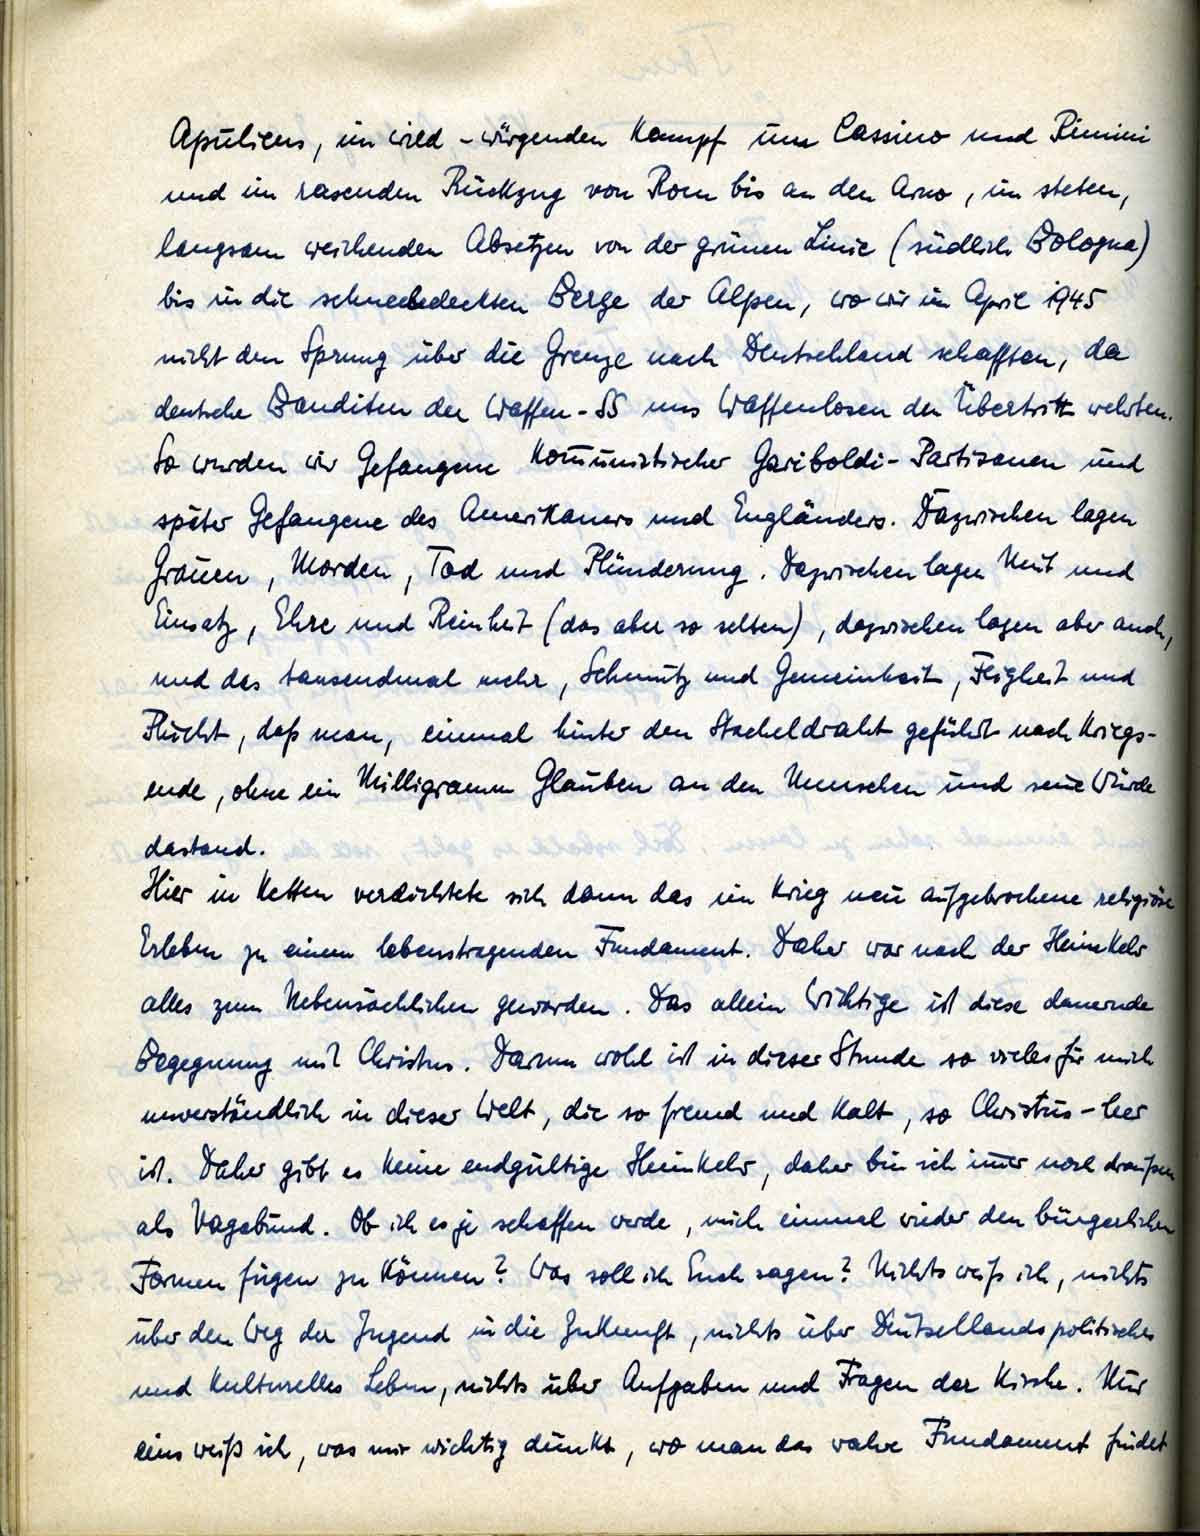 Apuliens, im wild-würgenden Kampf um Cassino und Rimini
und im rasenden Rückzug von Rom bis an den Arno, im steten,
langsam weichenden Absetzen von der grünen Linie (südlich Bologna)
bis in die schneebedeckten Berge der Alpen, wo wir im April 1945
nicht den Sprung über die Grenze nach Deutschland schafften, da
deutsche Banditen der Waffen-SS uns Waffenlosen den Übertritt wehrten.
So wurden wir Gefangene Kom̄unistischer Gariboldi-Partisanen und
später Gefangene des Amerikaners und Engländers. Dazwischen lagen
Grauen, Morden, Tod und Plünderung. Dazwischen lagen Mut und
Einsatz, Ehre und Reinheit (das aber so selten), dazwischen lagen aber auch,
und das tausendmal mehr, Schmutz und Gemeinheit, Feigheit und
Flucht, daß man, einmal hinter den Stacheldraht geführt nach Kriegs-
ende, ohne ein Milligramm Glauben an den Menschen und seine Würde
dastand.
Hier in Ketten verdichtete sich dann das im Krieg neu aufgebrochene religiöse
Erleben zu einem lebenstragenden Fundament. Daher war nach der Heimkehr
alles zum Nebensächlichen geworden. Das allein Wichtige ist diese dauernde
Begegnung mit Christus. Darum wohl ist in dieser Stunde so vieles für mich
unverständlich in dieser Welt, die so fremd und kalt, so Christus-leer
ist. Daher gibt es keine endgültige Heimkehr, daher bin ich im̄er noch draußen
als Vagabund. Ob ich es je schaffen werde, mich einmal wieder den bürgerlichen
Formen fügen zu können? Was soll ich Euch sagen? Nichts weiß ich, nichts
über den Weg der Jugend in die Zukunft, nichts über Deutschlands politisches
und kulturelles Leben, nichts über Aufgaben und Fragen der Kirche. Nur
eins weiß ich, was mir wichtig dünkt, wo man das wahre Fundament findet